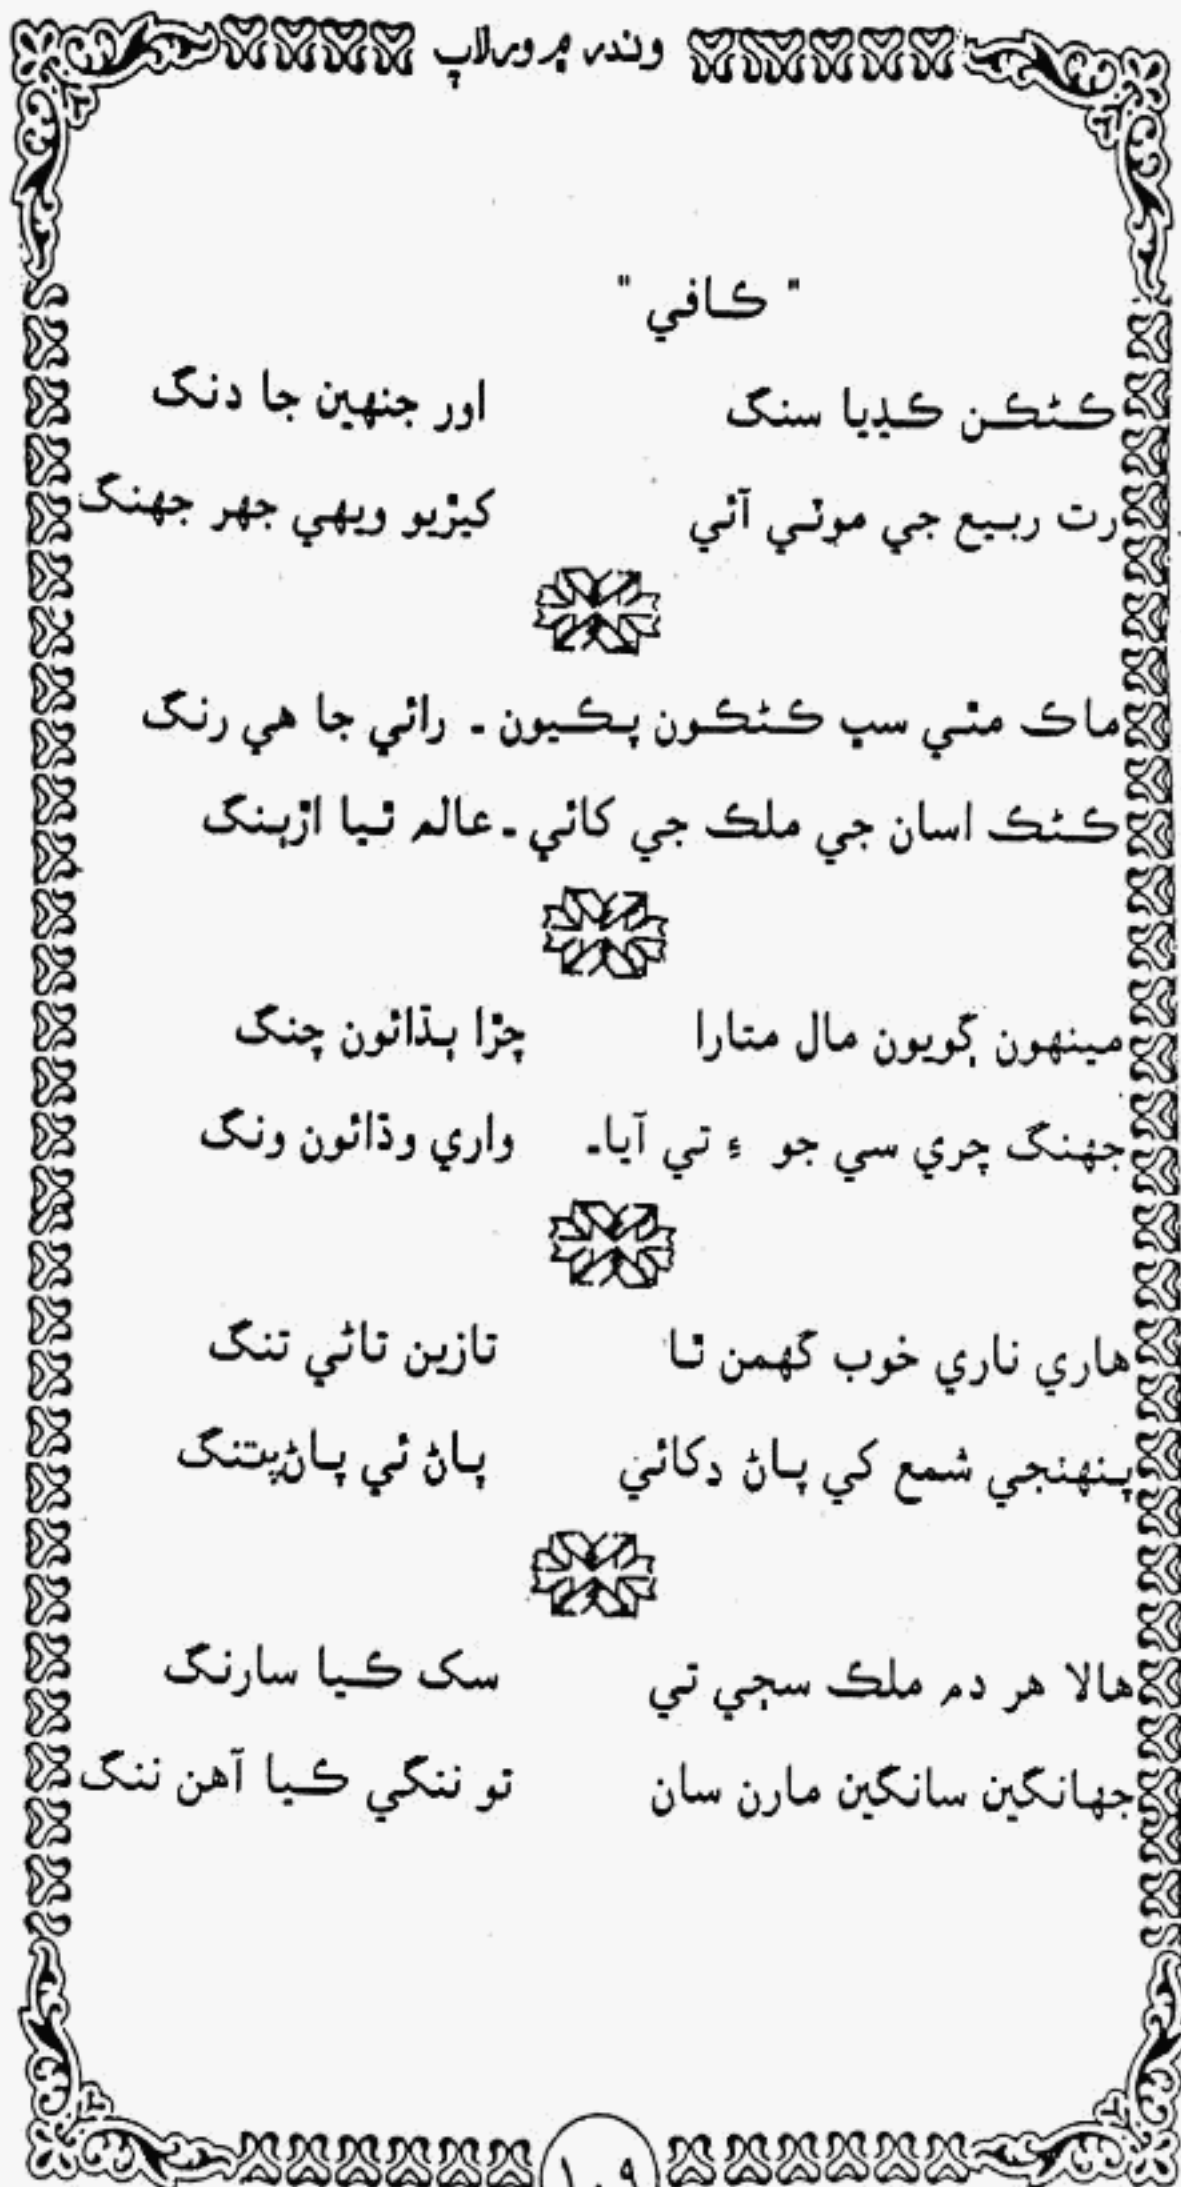 وندر ۾ ورلاپ
" ڪافي "
ڪڻڪن ڪڍيا سنگ اور جنهين جا دنگ
رت ربيع جي موٽي آئي کيڙيو ويهي جهر جهنگ
ماڪ مٿي سڀ ڪڻڪون پڪيون ـ رائي جا هي رنگ
ڪڻڪ اسان جي ملڪ جي کائي ـ عالم ٿيا اڙٻنگ
مينهون ڳويون مال متارا چڙا ٻڌائون چنگ
جهنگ چري سي جو ۽ تي آيا۔ واري وڌائون ونگ
هاري ناري خوب گهمن ٿا تازين تاڻي تنگ
پنهنجي شمع کي پاڻ ڊکائي پاڻ ئي پاڻ پتنگ
هالا هر دم ملڪ سڄي تي سک ڪيا سارنگ
جهانگين سانگين مارن سان تو ننگي ڪيا آهن ننگ
١٠٩